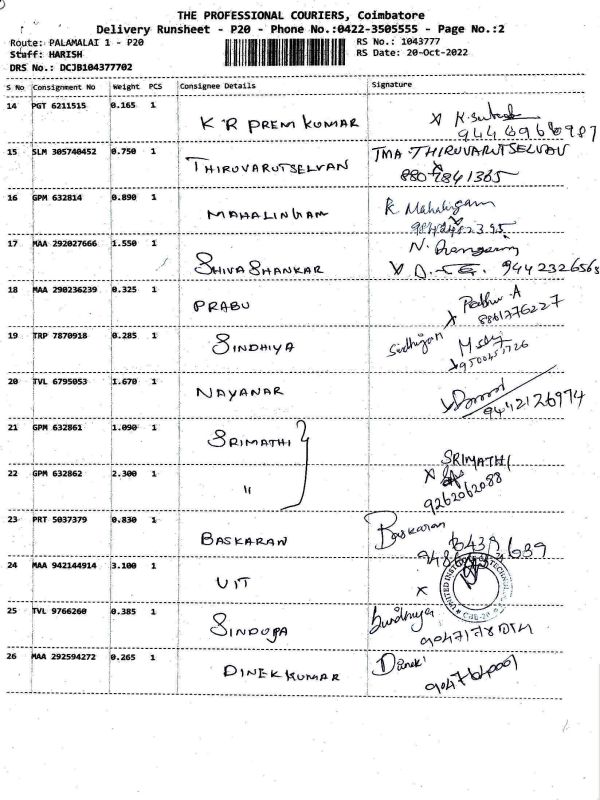 THE PROFESSIONAL COURIERS, Coimbatore
Delivery Runsheet - P20 - Phone No.:0422-3505555 - Page No.:2
Route: PALAMALAI 1 - P20 RS No.: 1043777
Staff: HARISH RS Date: 20-Oct-2022
DRS No.: DCJB104377702
S No Consignment No Weight PCS Consignee Details Signature
14 PGT 6211515 0.165 1 K R PREM KUMAR
15 SLM 305740452 0.750 1 THIRUVARUTSELVAN TMA.THIRUVARUTSELVAN
16 GPM 632814 0.890 1 MAHALINGAM R. Mahalingam
17 MAA 292027666 1.550 1 SHIVA SHANKAR
9442326568
18 MAA 290236239 0.325 1 PRABU
19 TRP 7870918 0.285 1 SINDHIYA
20 TVL 6795053 1.670 1 NAYANAR
9442126974
21 GPM 632861 1.090 1 SRIMATHI
SRIMATHI
22 GPM 632862 2.300 1 "
9262062088
23 PRT 5037379 0.830 1 BASKARAN Baskaran
24 MAA 942144914 3.100 1 UIT X
25 TVL 9766260 0.385 1
26 MAA 292594272 0.265 1 DINEKKUMAR